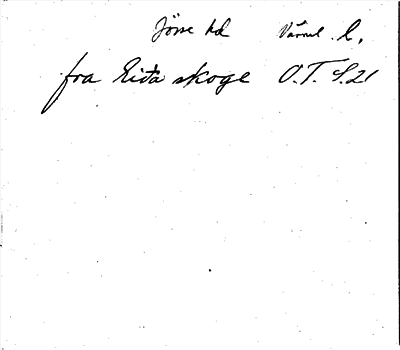 Jösse hd Värml. l.
fra Eida skoge O.T. S.21